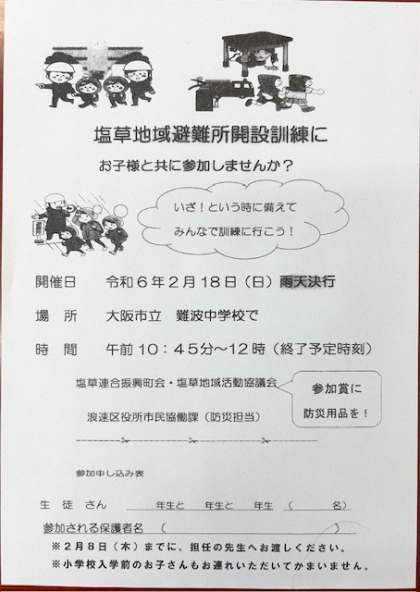 塩草地域避難所開設訓練に
お子様と共に参加しませんか？
いざ！という時に備えて
みんなで訓練に行こう！
開催日 令和６年２月１８日（日）雨天決行
場 所 大阪市立 難波中学校で
時 間 午前１０：４５分～１２時（終了予定時刻）
塩草連合振興町会・塩草地域活動協議会
浪速区役所市民協働課（防災担当）
参加賞に
防災用品を！
参加申し込み表
生 徒 さん ＿＿＿年生と ＿＿＿年生と ＿＿＿年生 （ 名）
参加される保護者名 （ ）
※２月８日（木）までに、担任の先生へお渡しください。
※小学校入学前のお子さんもお連れいただいてかまいません。